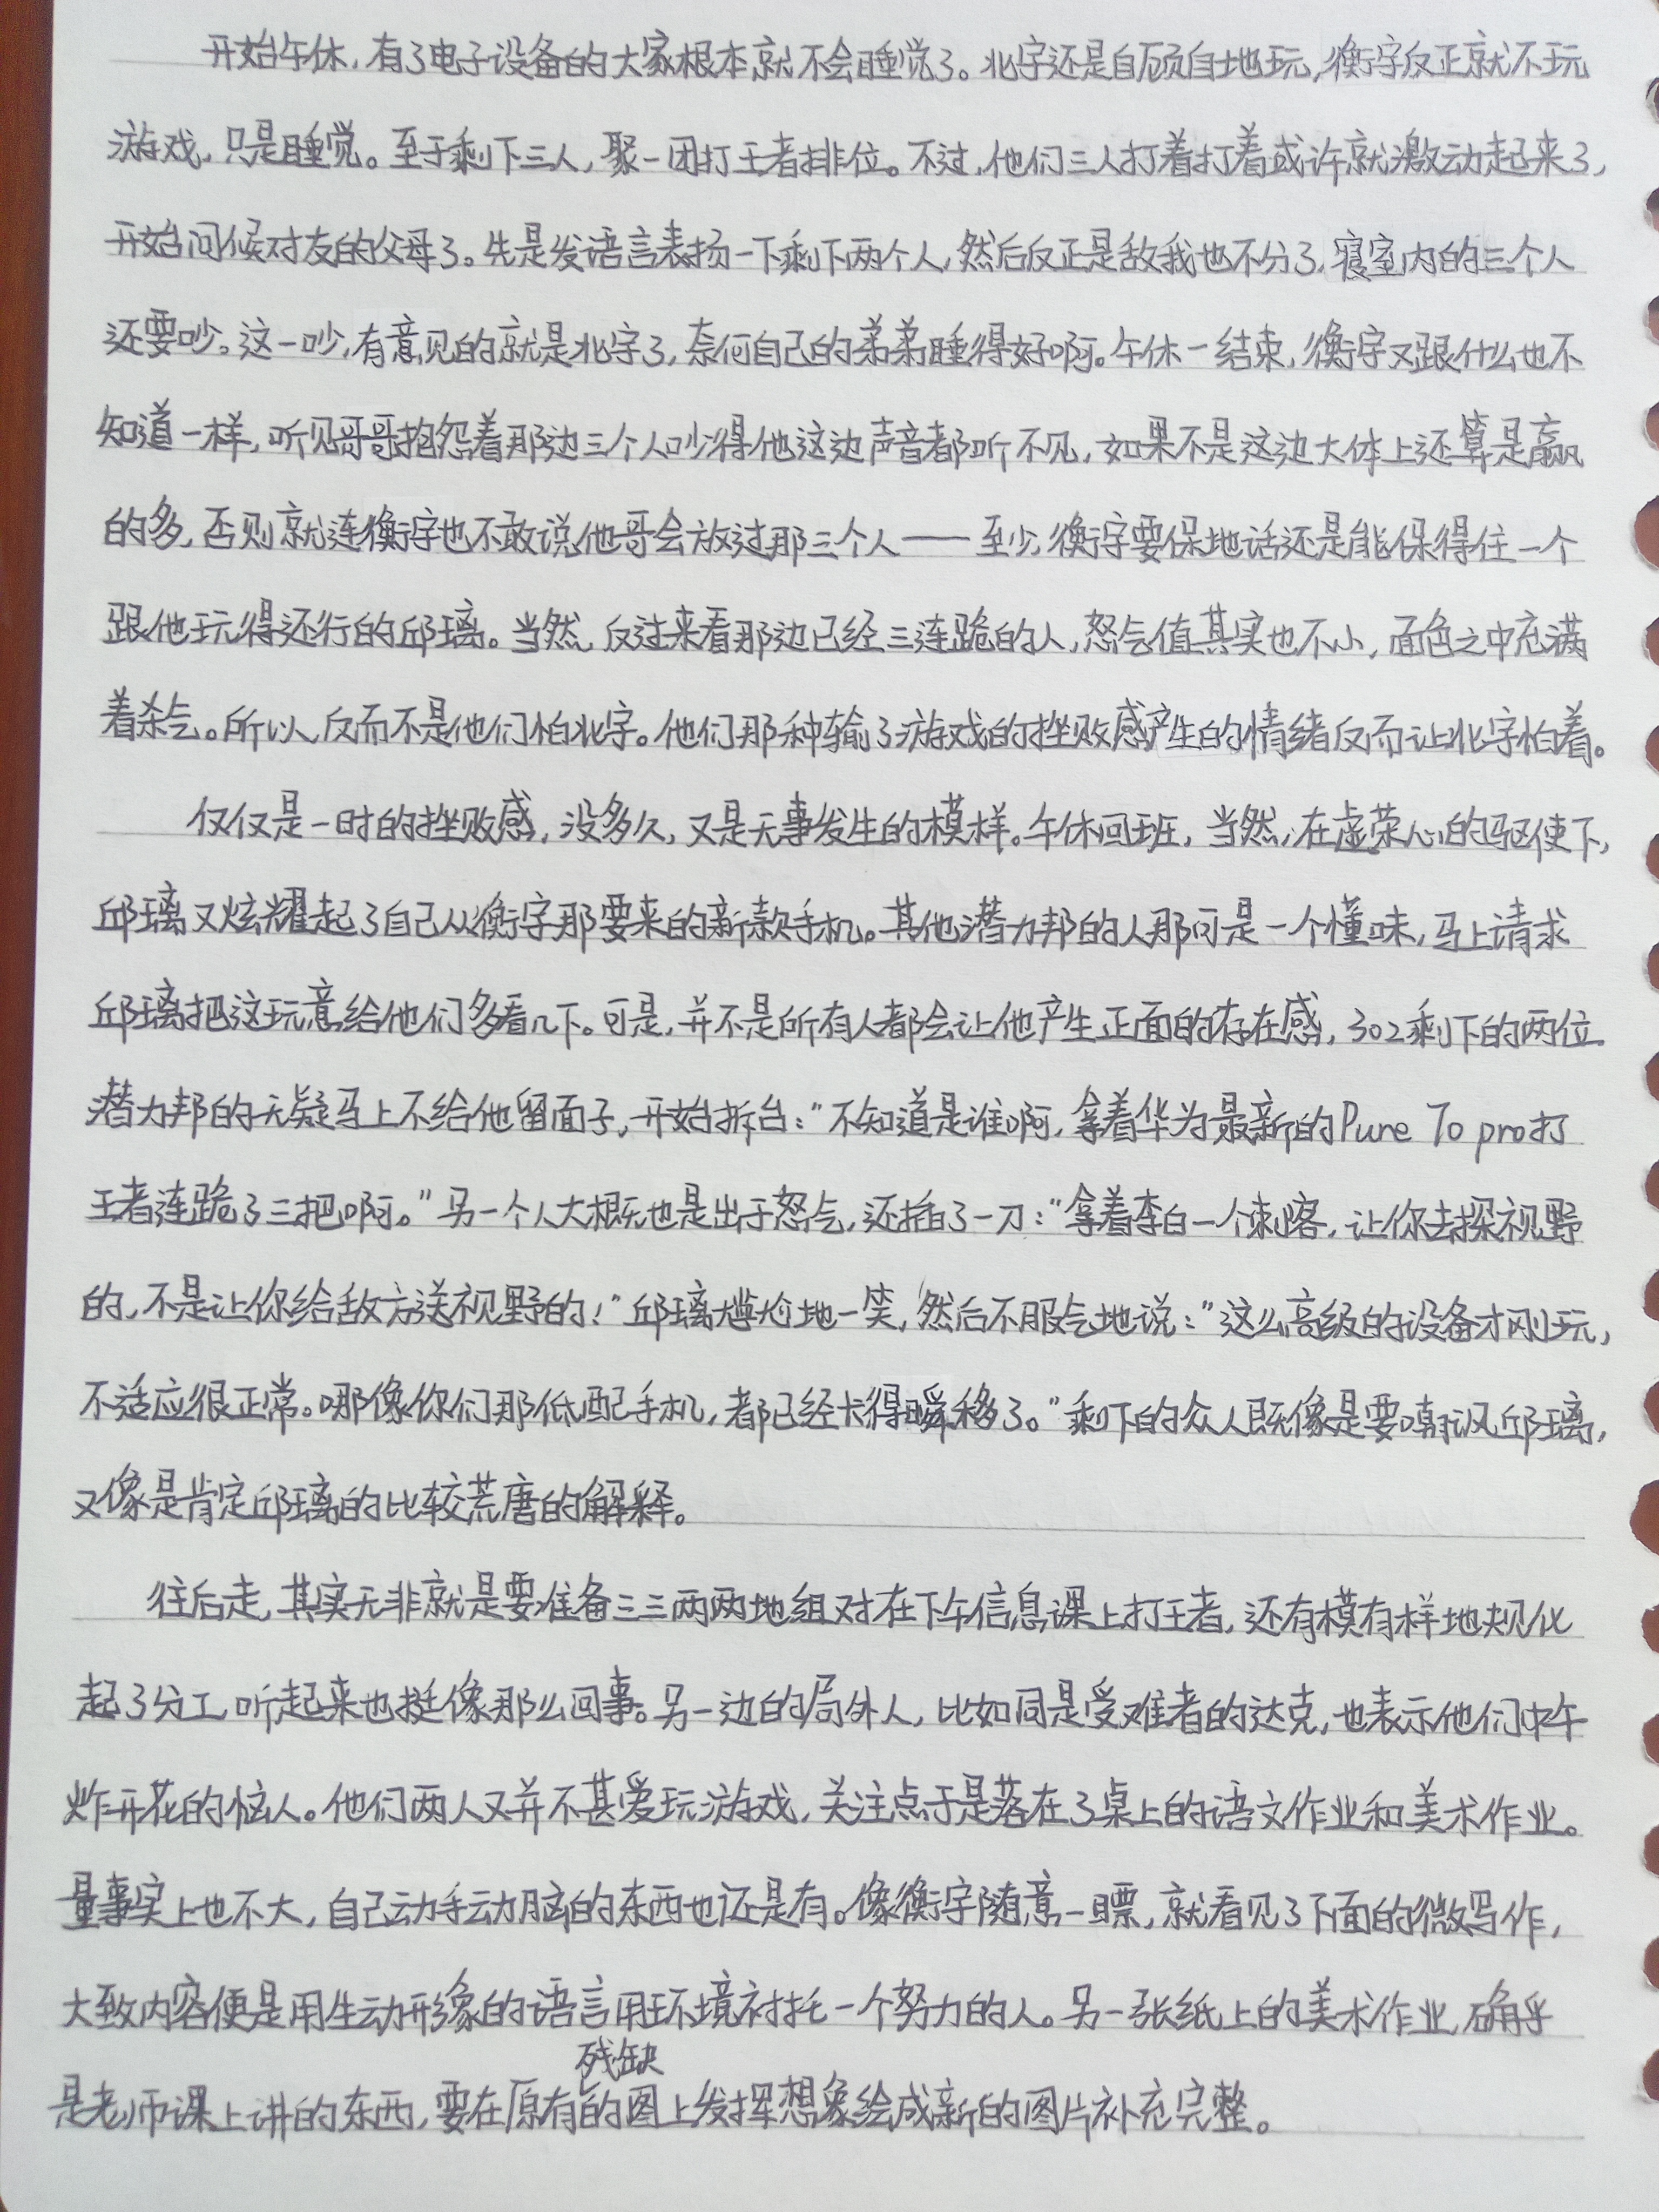 开始午休，有了电子设备的大家根本就不会睡觉了。北字还是自顾自地玩，衡字反正就不玩
游戏，只是睡觉。至于剩下三人，聚一团打王者排位。不过，他们三人打着打着或许就激动起来了，
开始问候对友的父母了。先是发语言表扬一下剩下两个人，然后反正是敌我也不分了，寝室内的三个人
还要吵。这一吵，有意见的就是北字了，奈何自己的弟弟睡得好啊。午休一结束，衡字又跟什么也不
知道一样，听见哥哥抱怨着那边三个人吵得他这边声音都听不见，如果不是这边大体上还算是赢
的多，否则就连衡字也不敢说他哥会放过那三个人——至少，衡字要保地话还是能保得住一个
跟他玩得还行的邱璃。当然，反过来看那边已经三连跪的人，怒气值其实也不小，面色之中充满
着杀气。所以，反而不是他们怕北字。他们那种输了游戏的挫败感产生的情绪反而让北字怕着。
仅仅是一时的挫败感，没多久，又是无事发生的模样。午休回班，当然，在虚荣心的驱使下，
邱璃又炫耀起了自己从衡字那要来的新款手机。其他潜力邦的人那可是一个懂味，马上请求
邱璃把这玩意给他们多看几下。可是，并不是所有人都会让他产生正面的存在感，302剩下的两位
潜力邦的无疑马上不给他留面子，开始拆台："不知道是谁啊，拿着华为最新的Pure 70 pro打
王者连跪了三把啊。"另一个人大概也是出于怒气，还插了一刀："拿着李白一个刺客，让你去探视野
的，不是让你给敌方送视野的！"邱璃尴尬地一笑，然后不服气地说："这么高级的设备才刚玩，
不适应很正常。哪像你们那低配手机，都已经卡得瞬移了。"剩下的众人既像是要嘲讽邱璃，
又像是肯定邱璃的比较荒唐的解释。
往后走，其实无非就是要准备三三两两地组对在下午信息课上打王者，还有模有样地规化
起了分工，听起来也挺像那么回事。另一边的局外人，比如同是受难者的达克，也表示他们中午
炸开花的恼人。他们两人又并不甚爱玩游戏，关注点于是落在了桌上的语文作业和美术作业。
量事实上也不大，自己动手动脑的东西也还是有。像衡字随意一瞟，就看见了下面的微写作，
大致内容便是用生动形象的语言用环境衬托一个努力的人。另一张纸上的美术作业，确乎
是老师课上讲的东西，要在原有残缺的图上发挥想象绘成新的图片补充完整。